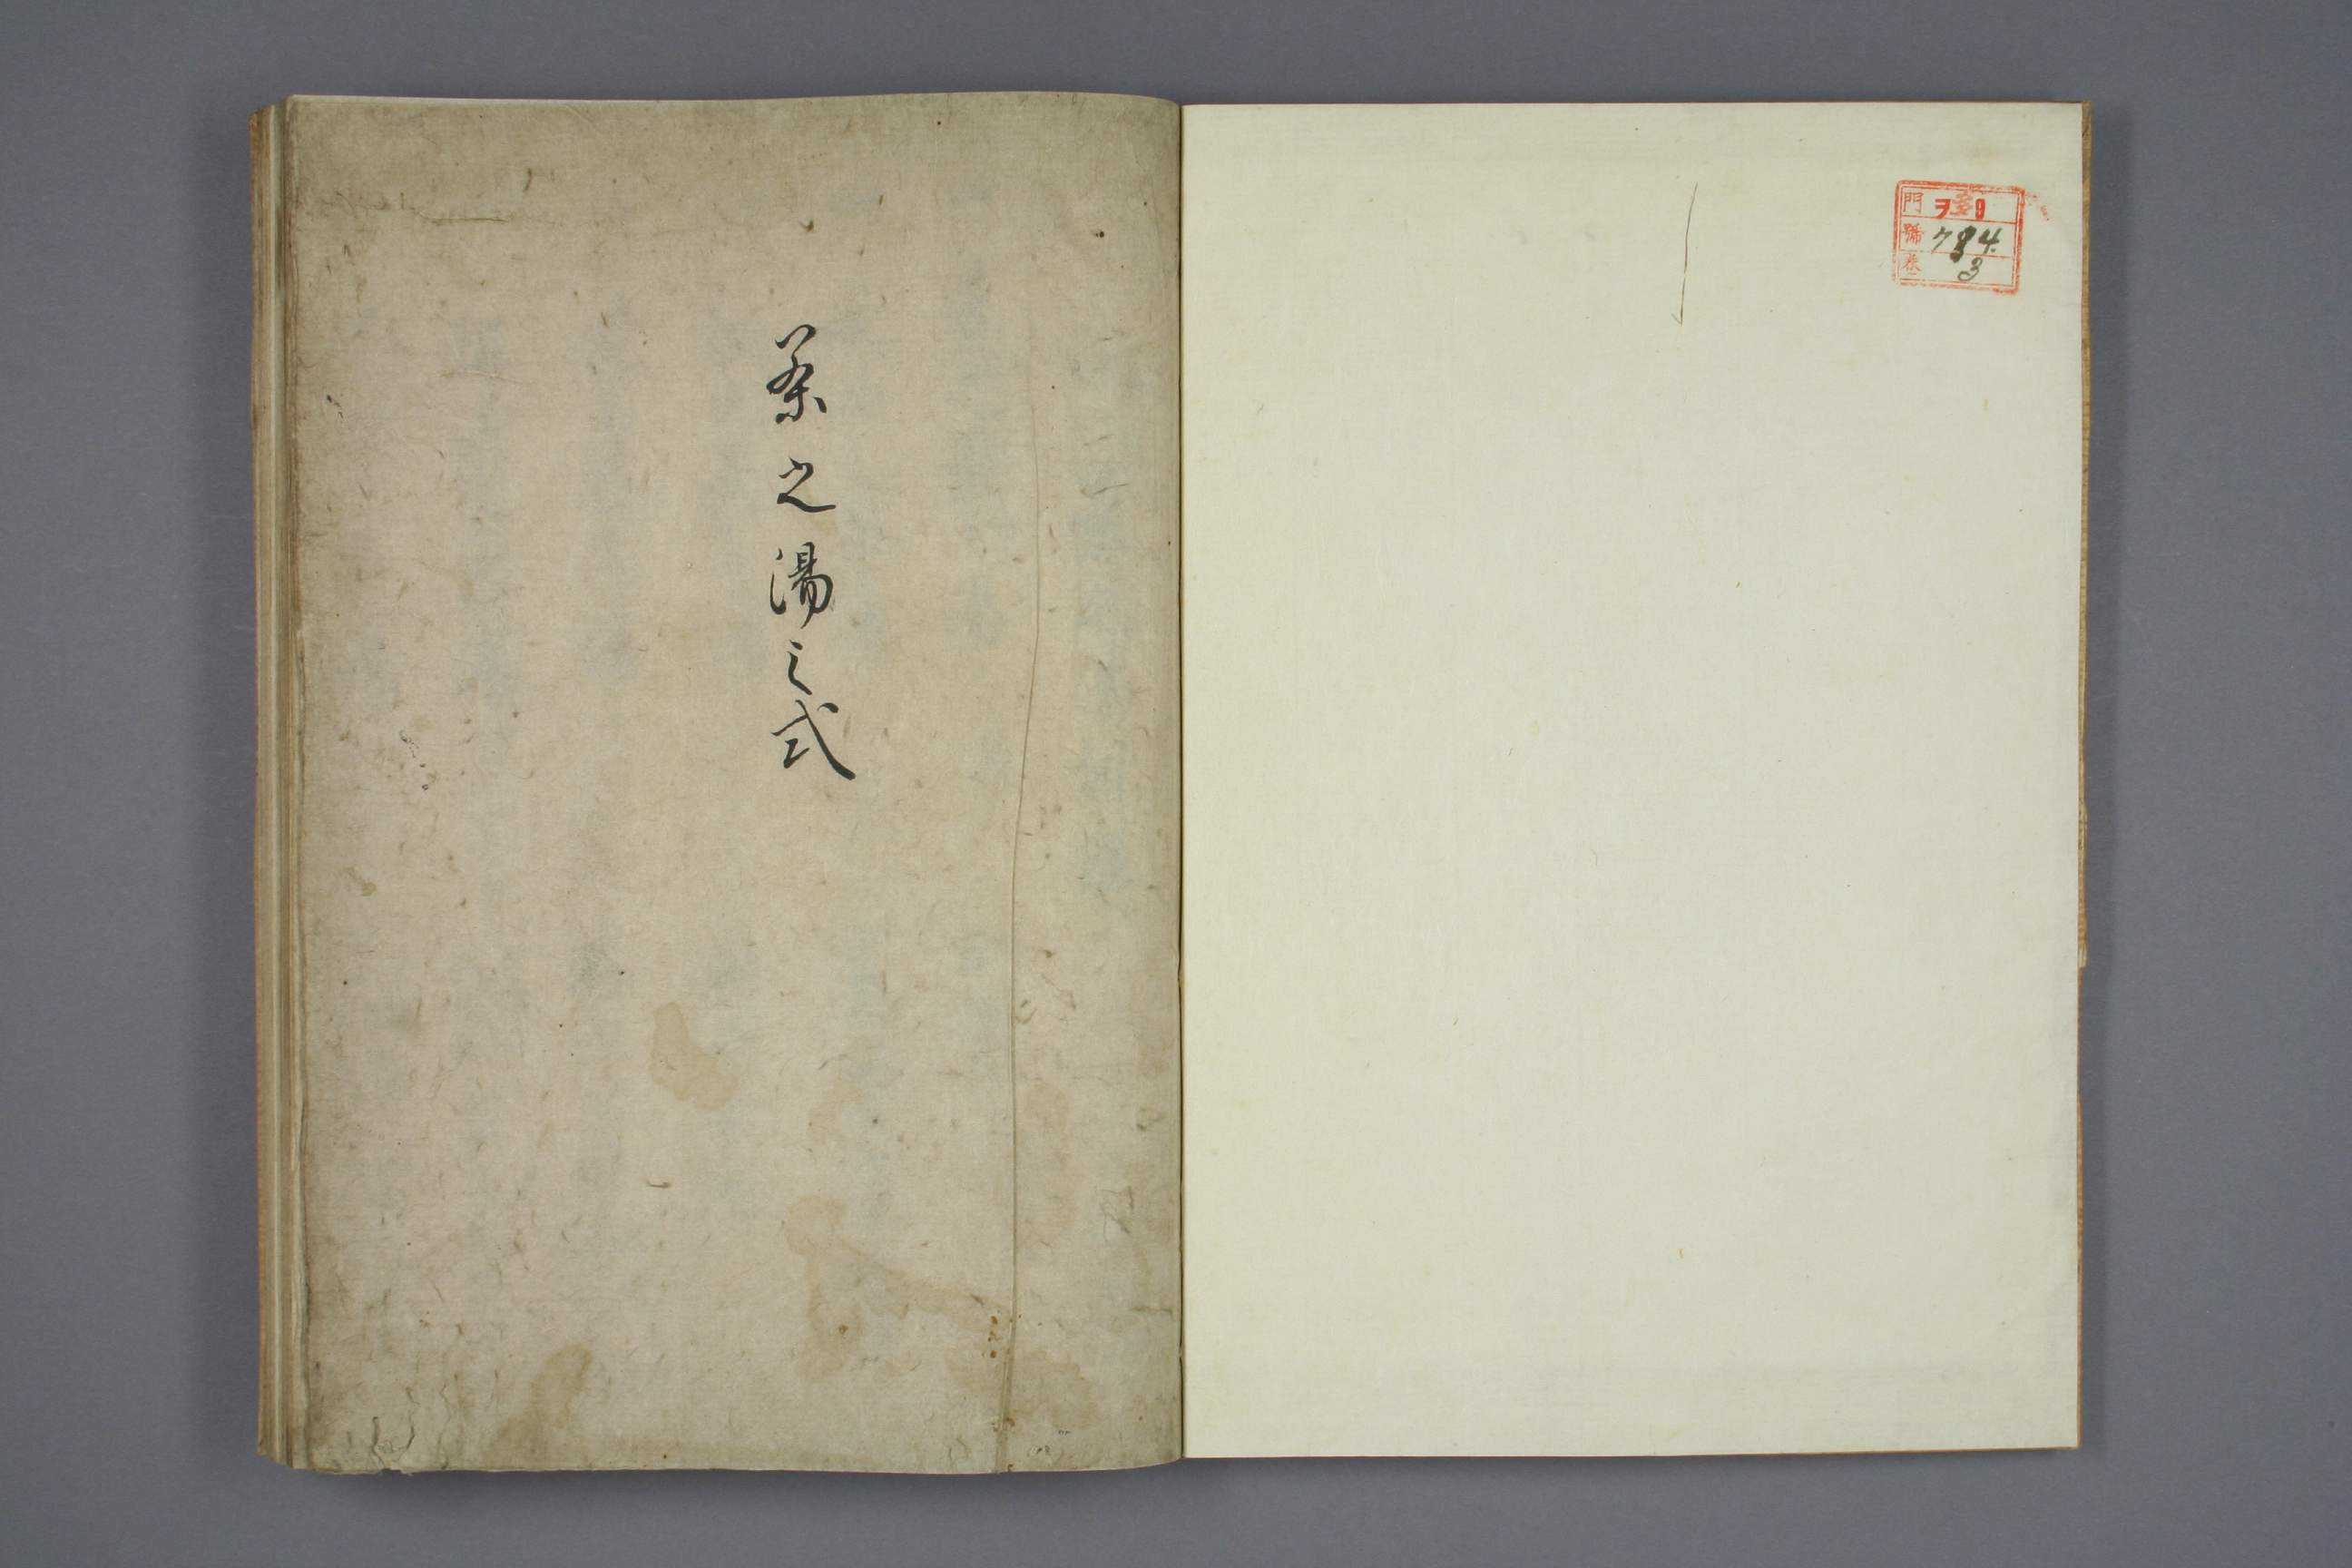 門 ヲ 9
號 784.
卷 3
茶之湯之式